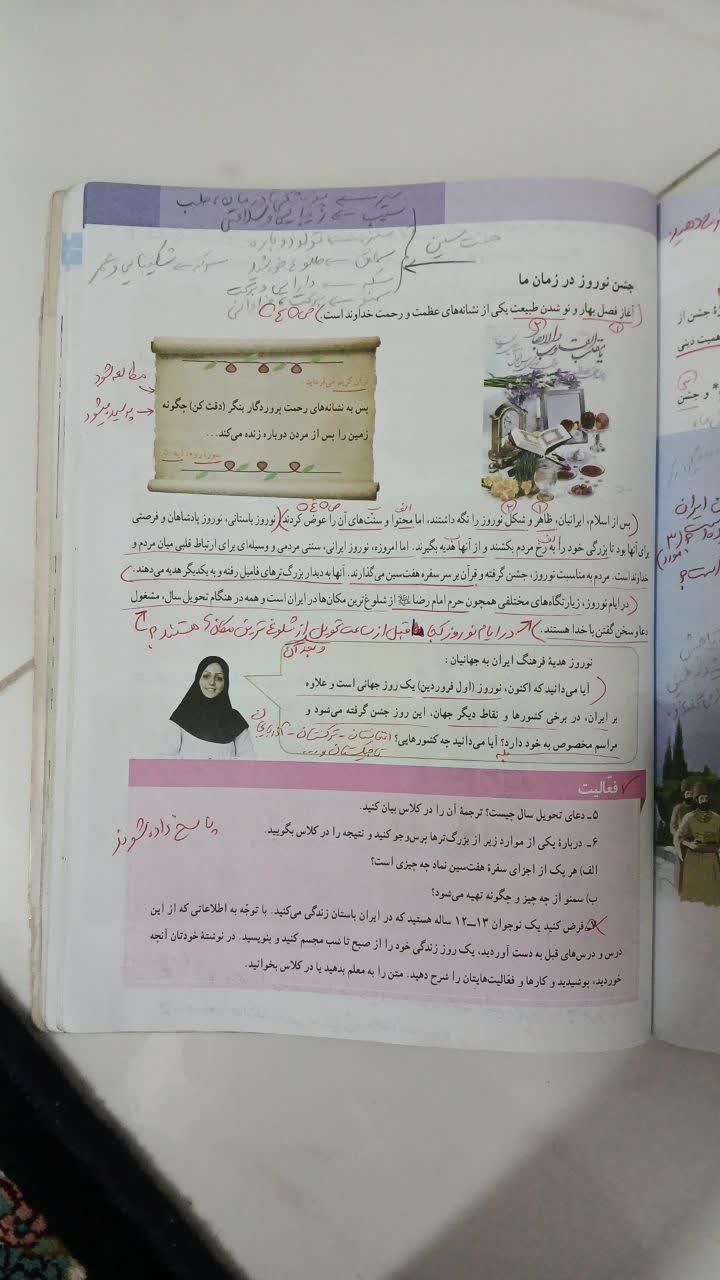 سیر ← پزشکی، درمان، طب
سیب ← زیبایی و سلامتی
سبزه ← تولد دوباره
هفت سین
سماق ← طلوع خورشید
سرکه ← شکیبایی و عمر
سکه ← دارایی و
سمنو ←
جشن نوروز در زمان ما
(آغاز فصل بهار و نو شدن طبیعت یکی از نشانه‌های عظمت و رحمت خداوند است.) ص ۵ و ۵
یا مقلب القلوب والابصار
مطالعه شود
پرسیده میشود
قرآن کریم می‌فرماید:
پس به نشانه‌های رحمت پروردگار بنگر (دقت کن) چگونه
زمین را پس از مردن دوباره زنده می‌کند...
سوره روم، آیه ۵۰
(پس از اسلام، ایرانیان، ظاهر و شکل نوروز را نگه داشتند، اما محتوا و سنّت‌های آن را عوض کردند.) نوروز باستانی، نوروز پادشاهان و فرصتی
برای آنها بود تا بزرگی خود را به رخ مردم بکشند و از آنها هدیه بگیرند. اما امروزه، نوروز ایرانی، سنتی مردمی و وسیله‌ای برای ارتباط قلبی میان مردم و
خداوند است. مردم به مناسبت نوروز، جشن گرفته و قرآن بر سر سفره هفت‌سین می‌گذارند. آنها به دیدار بزرگ‌ترهای فامیل رفته و به یکدیگر هدیه می‌دهند.
(در ایام نوروز، زیارتگاه‌های مختلفی همچون حرم امام رضا از شلوغ‌ترین مکان‌ها در ایران است و همه در هنگام تحویل سال، مشغول
دعا و سخن گفتن با خدا هستند.) در ایام نوروز کجا قبل از ساعت تحویل از شلوغ ترین مکان ها هستند؟
نوروز هدیهٔ فرهنگ ایران به جهانیان:
(آیا می‌دانید که اکنون، نوروز (اول فروردین) یک روز جهانی است و علاوه
بر ایران، در برخی کشورها و نقاط دیگر جهان، این روز جشن گرفته می‌شود و
مراسم مخصوص به خود دارد؟ آیا می‌دانید چه کشورهایی؟ افغانستان - ترکستان - آذربایجان
بله تاجیکستان و...
فعّالیت
۵ـ دعای تحویل سال چیست؟ ترجمهٔ آن را در کلاس بیان کنید.
۶ـ دربارهٔ یکی از موارد زیر از بزرگ‌ترها پرس‌وجو کنید و نتیجه را در کلاس بگویید.
پاسخ داده شوند
الف) هر یک از اجزای سفرهٔ هفت‌سین نماد چه چیزی است؟
ب) سمنو از چه چیز و چگونه تهیه می‌شود؟
۷ـ فرض کنید یک نوجوان ۱۳ــ۱۲ ساله هستید که در ایران باستان زندگی می‌کنید. با توجّه به اطلاعاتی که از این
درس و درس‌های قبل به دست آوردید، یک روز زندگی خود را از صبح تا شب مجسم کنید و بنویسید. در نوشتهٔ خودتان آنچه
خوردید، پوشیدید و کارها و فعّالیت‌هایتان را شرح دهید. متن را به معلم بدهید یا در کلاس بخوانید.